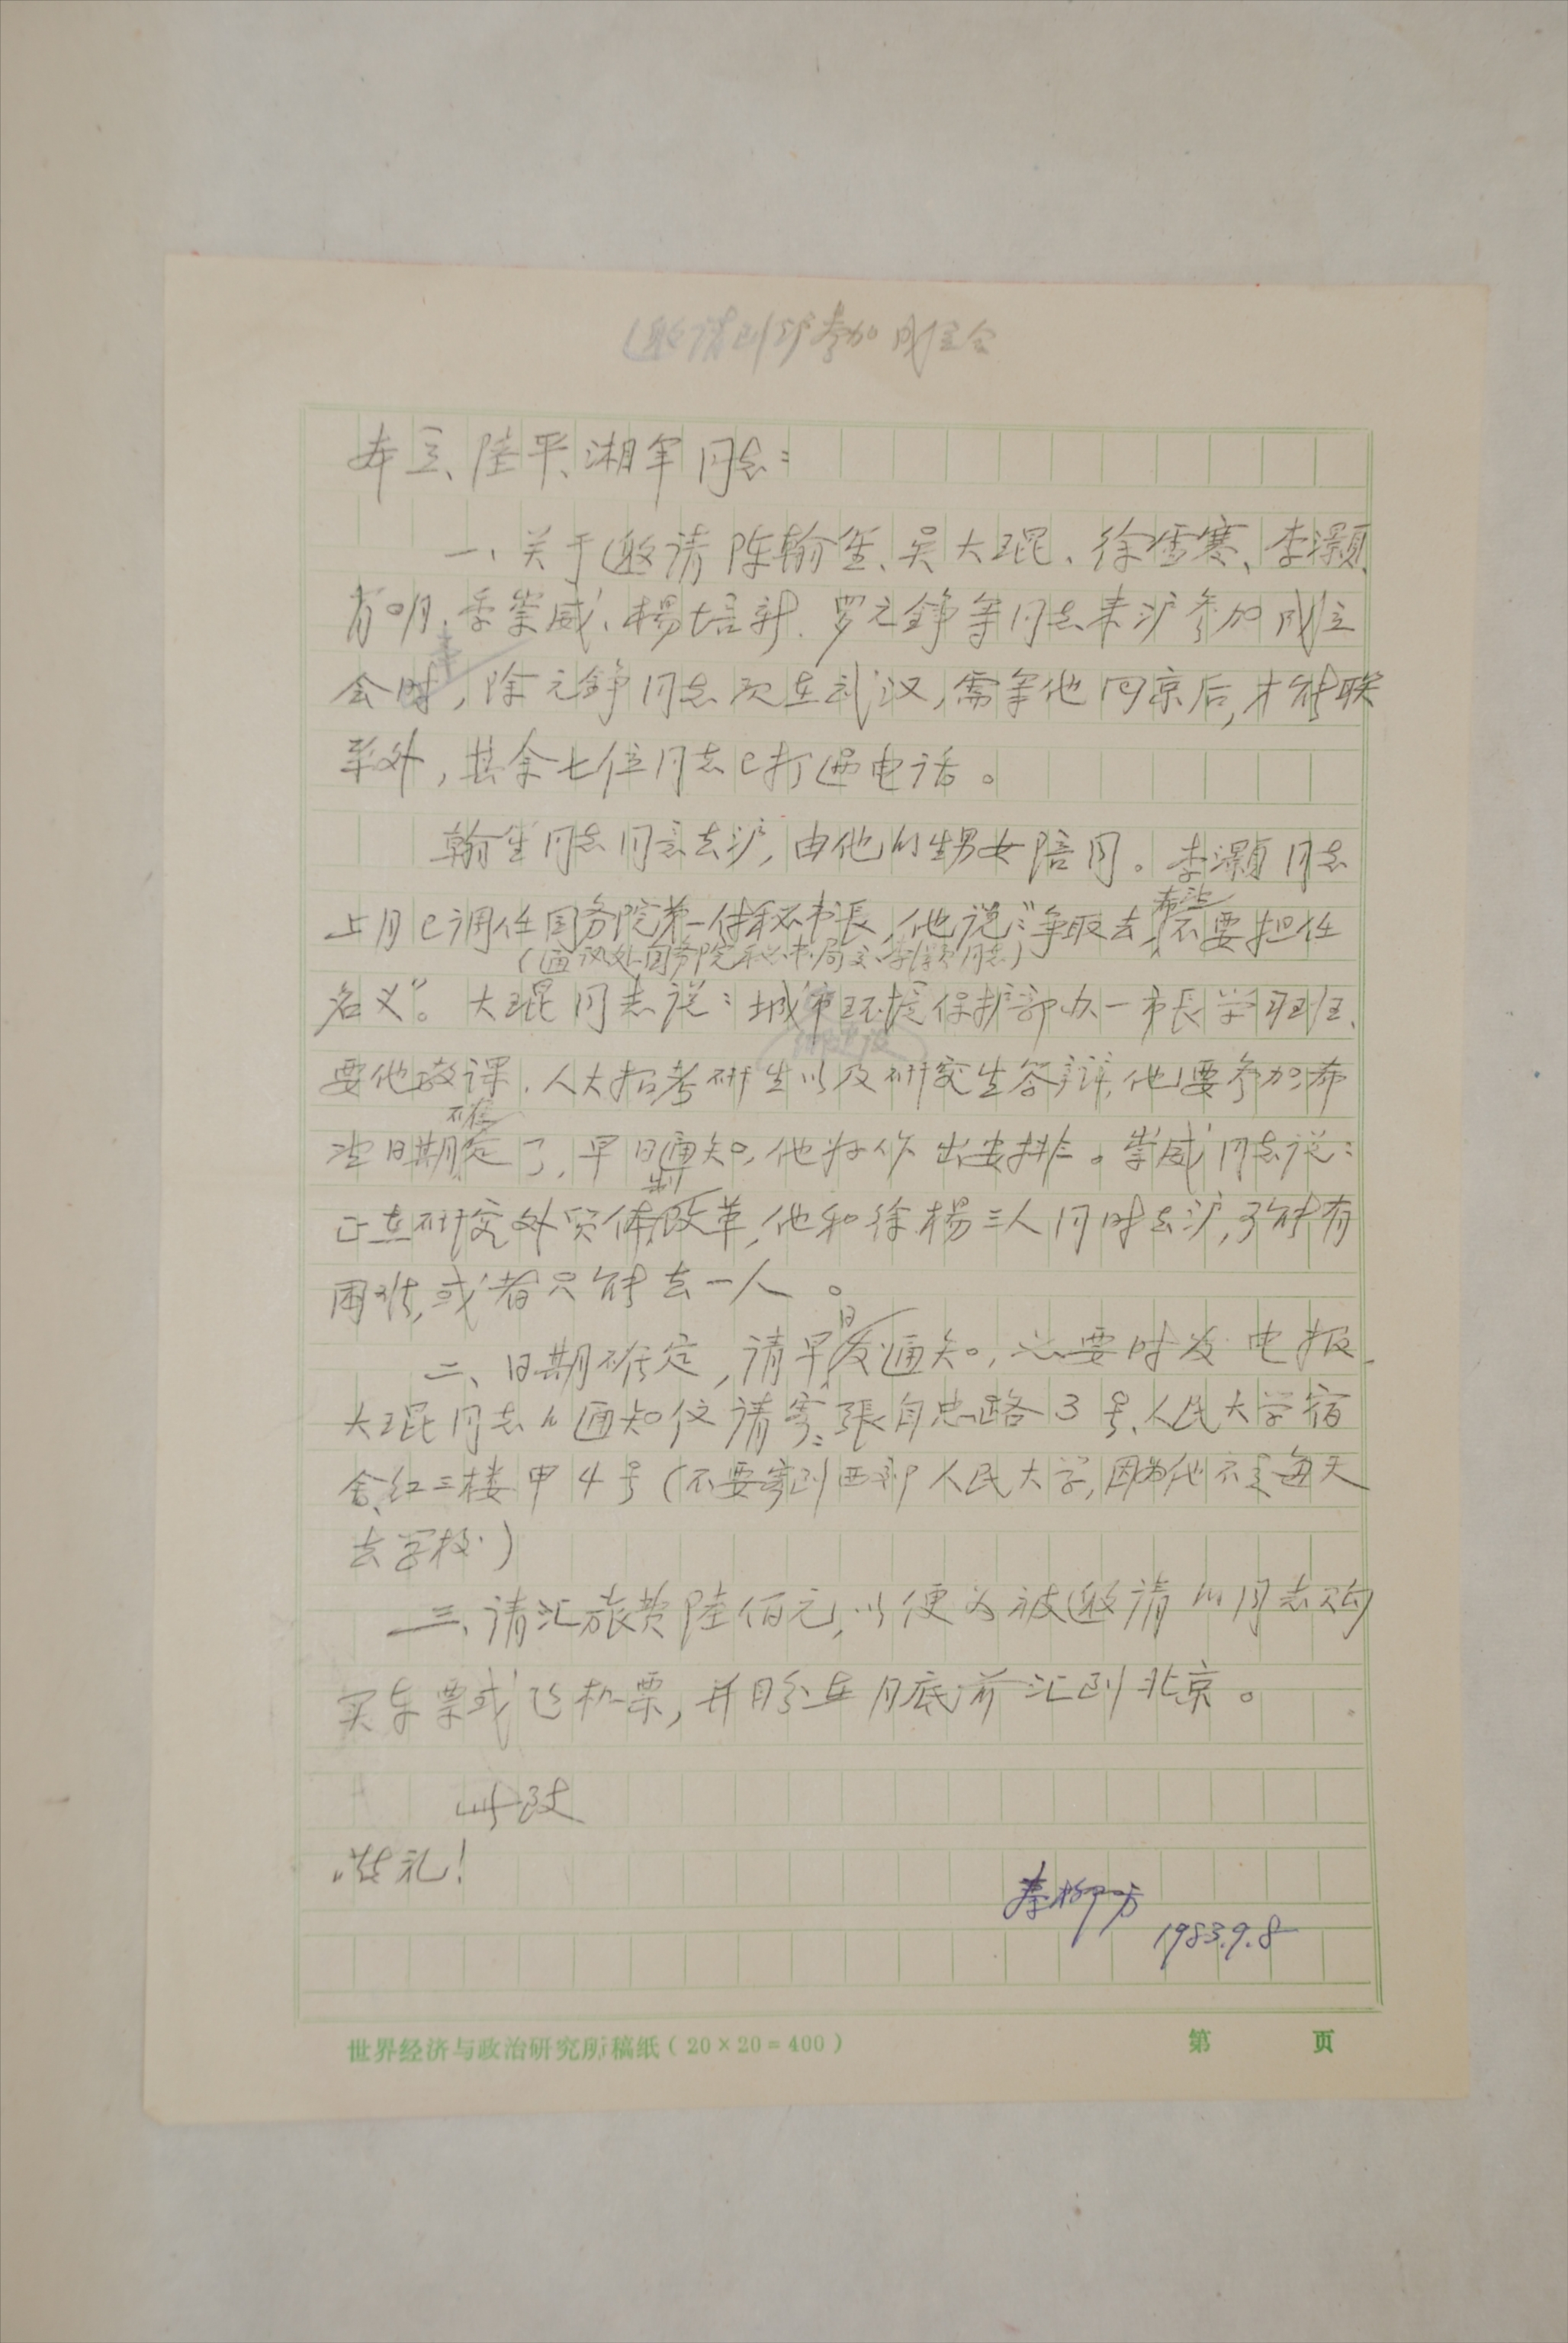 邀请到沪参加成立会
本立、陆平、湘军同志:
一、关于邀请陈翰笙、吴大琨、徐雪寒、李灏、
肖明、季崇威、杨培新、罗元铮等同志来沪参加成立
会时,除元铮同志现在武汉,需等他回京后,才能联
系外,其余七位同志已打过电话。
翰笙同志同意去沪,由他的甥女陪同。李灏同志
上月已调任国务院第一付秘书长,他说:“争取去,希望不要担任
(通讯处国务院秘书局交李灏同志)
名义”。大琨同志说:城市环境保护部办一市长学习班,
要他教课,人大招考研生以及研究生答辩,他要参加,希
望日期确定了,早日通知,他好作出安排。崇威同志说:
正在研究外贸体制改革,他和徐、杨三人同时去沪,可能有
困难,或者只能去一人。
二、日期确定,请早日发通知,必要时发电报。
大琨同志的通知仅请寄:张自忠路3号、人民大学宿
舍、红三楼甲4号(不要寄到西郊人民大学,因为他不是每天
去学校)
三、请汇旅费陆佰元,以便为被邀请的同志购
买车票或飞机票,并盼在月底前汇到北京。
此致
敬礼!
秦柳方
1983.9.8
世界经济与政治研究所稿纸(20×20=400)
第 页